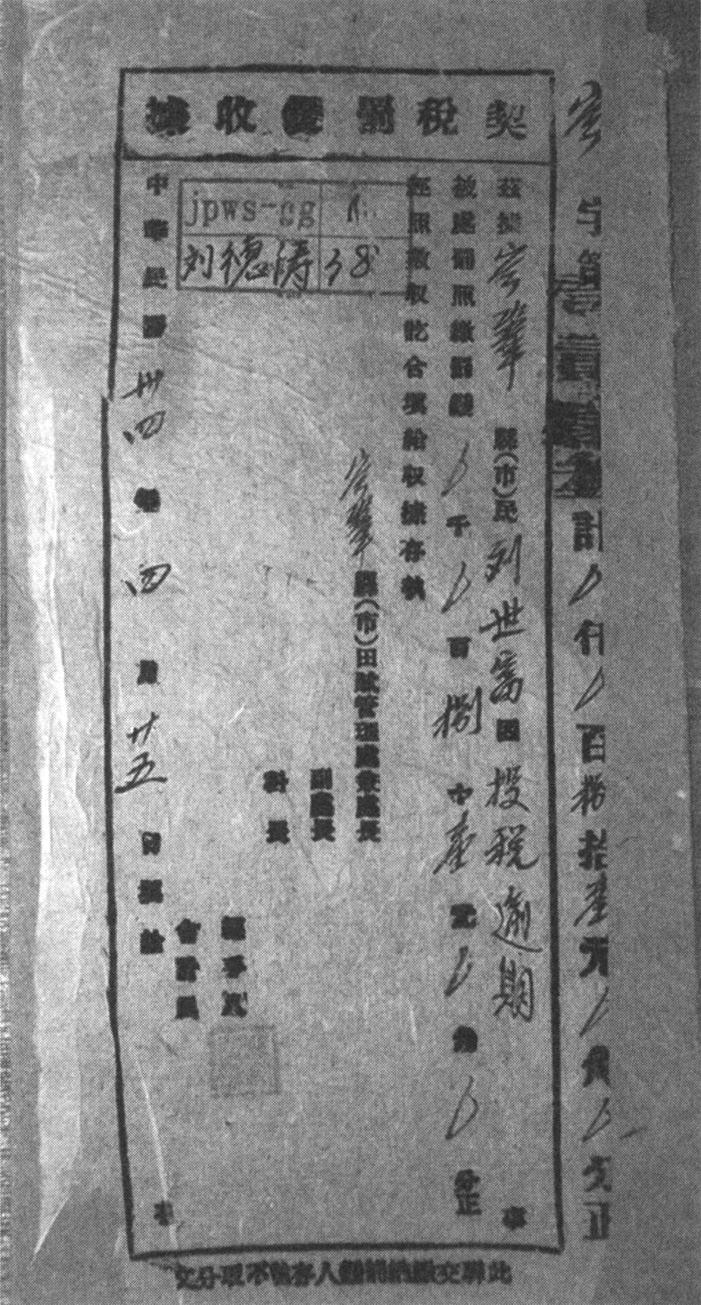 契稅罰鍰收據
茲據岑鞏縣(市)民刘世富因投税逾期事
被處罰照繳罰鍰0千0百捌十壹元0角0分正
經照數收訖合填給收據存執
岑鞏縣(市)田賦管理處兼處長
副處長
科長
經手員
會計員
中華民國卅四年四月廿五日填給
jpws-cg
刘德涛 38
計0仟0百捌拾壹元0角0分正
此聯交繳納罰鍰人存執不取分文